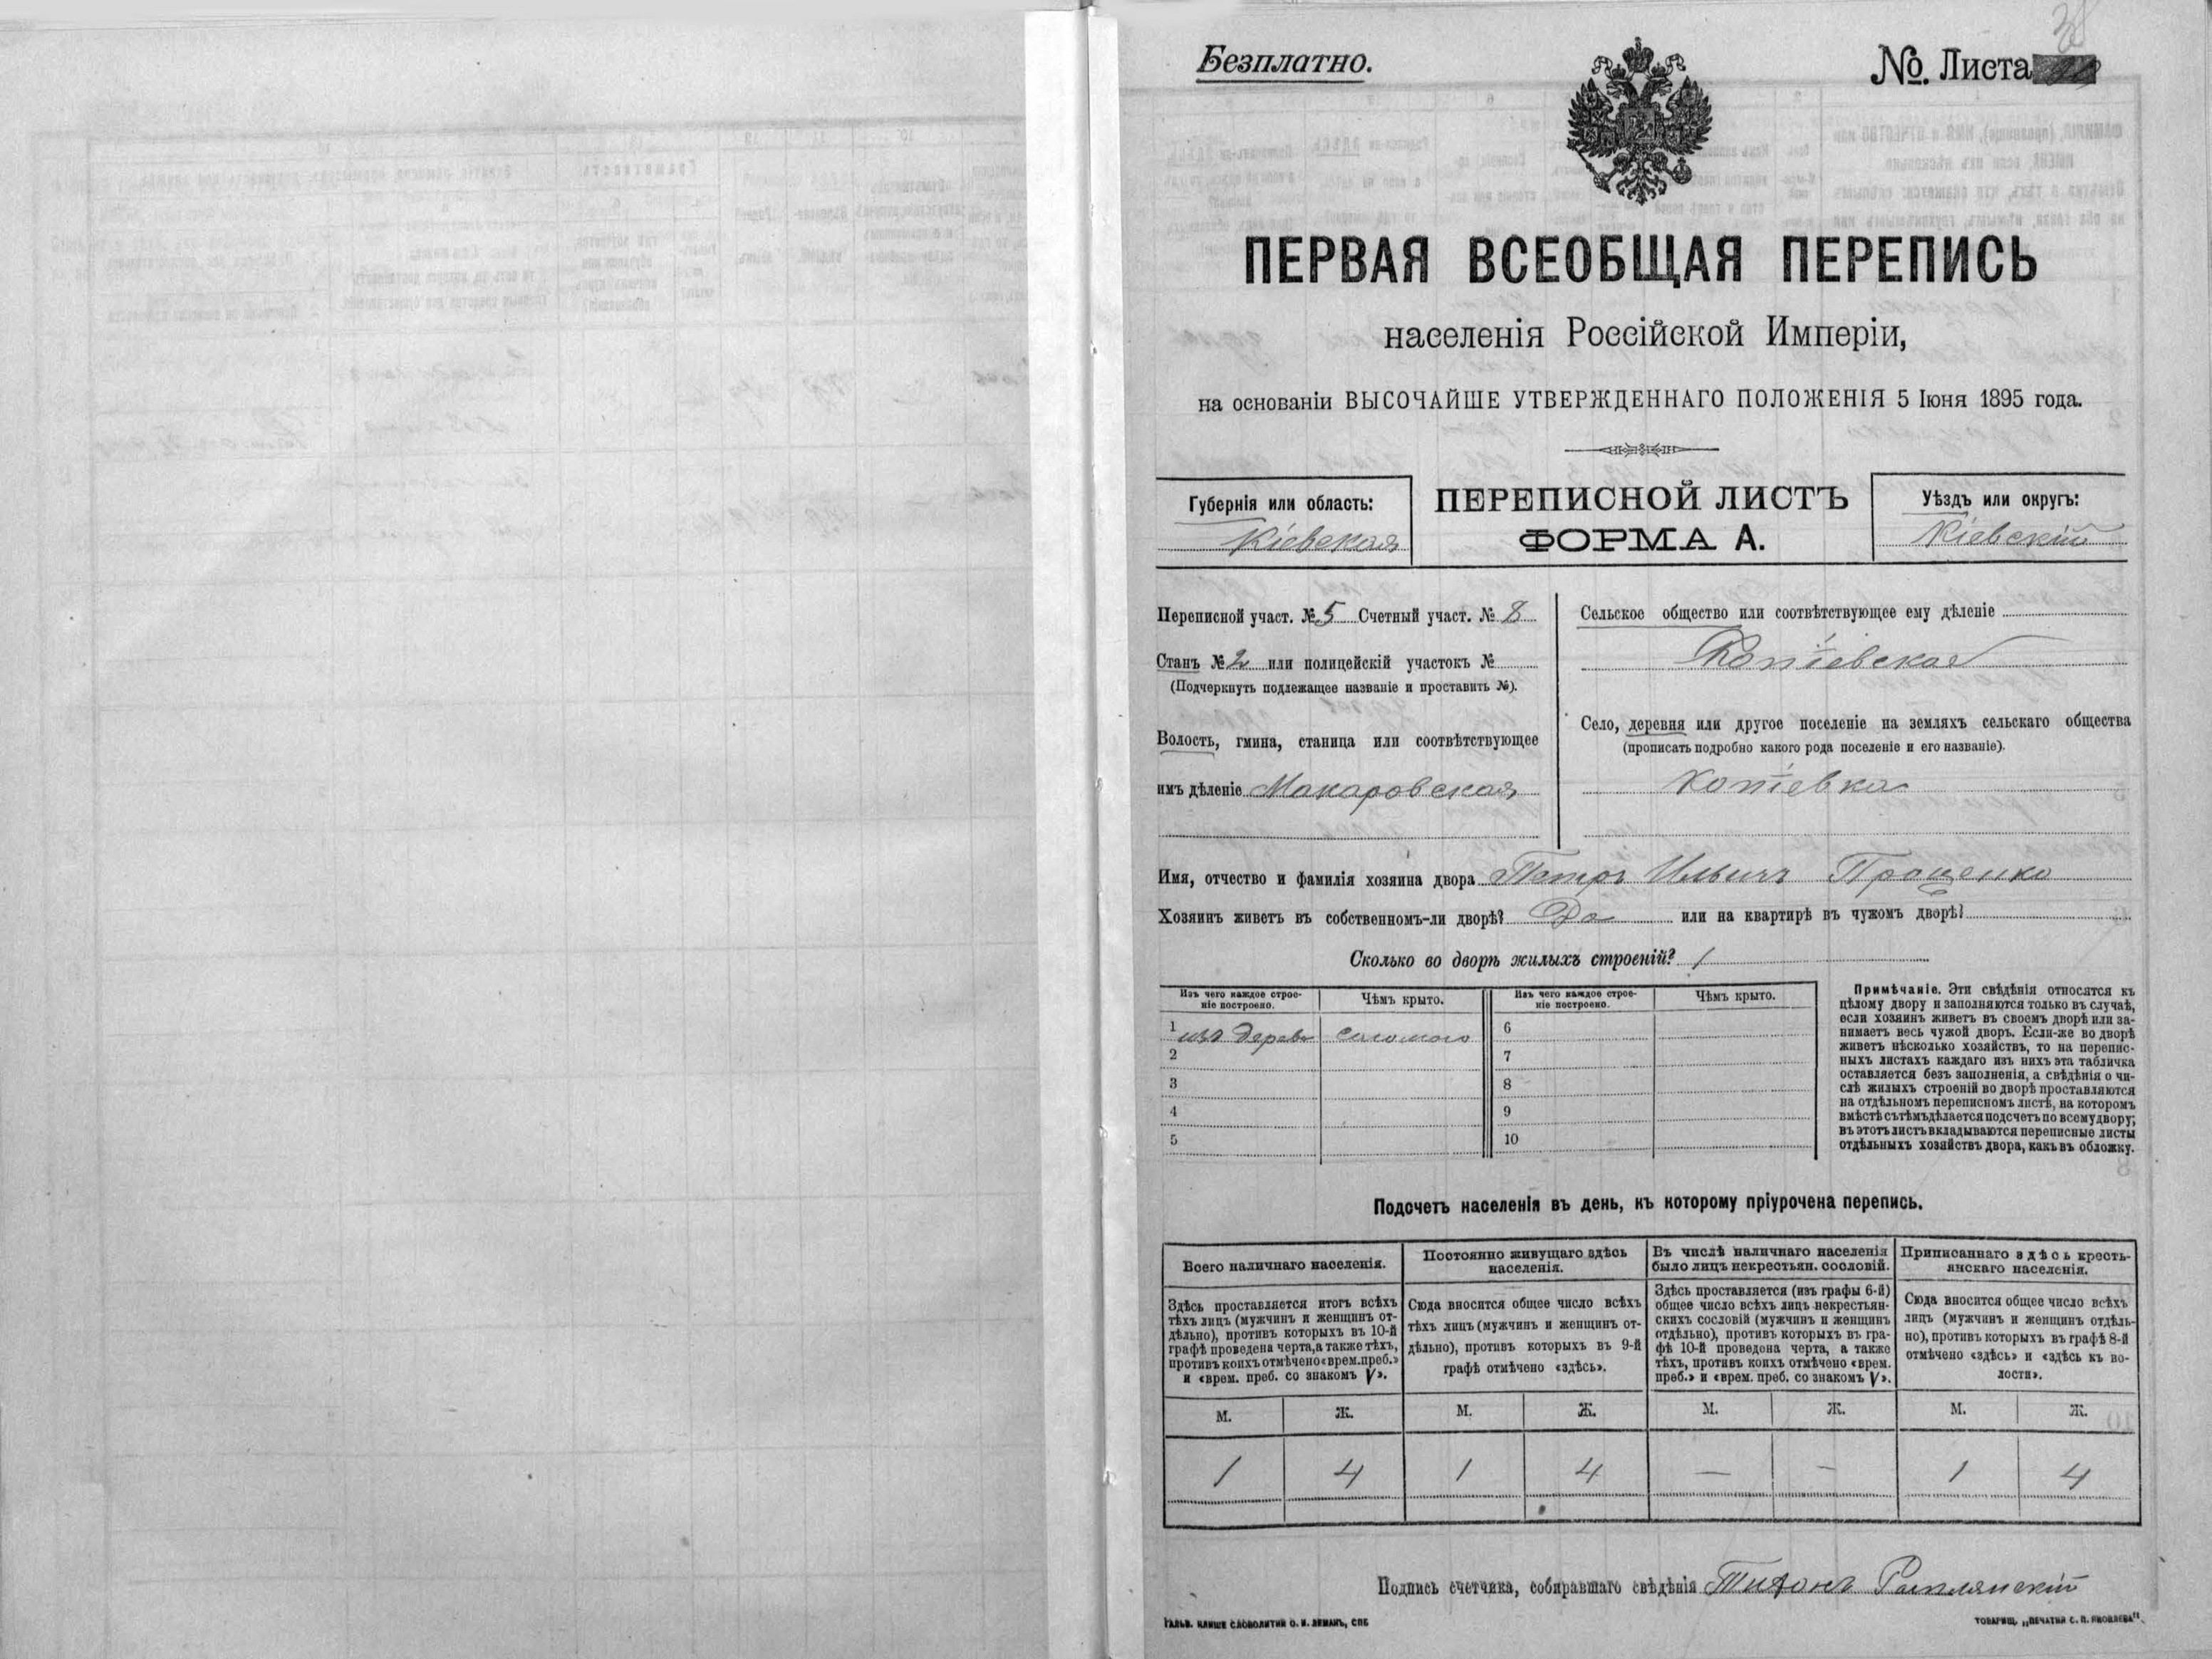 Безплатно.
№. Листа 38
ПЕРВАЯ ВСЕОБЩАЯ ПЕРЕПИСЬ
населенія Россійской Имперіи,
на основаніи ВЫСОЧАЙШЕ УТВЕРЖДЕННАГО ПОЛОЖЕНІЯ 5 Іюня 1895 года.
Губернія или область:
Кіевская
ПЕРЕПИСНОЙ ЛИСТЪ
ФОРМА А.
Уѣздъ или округъ:
Кіевскій
Переписной участ. № 5 Счетный участ. № 8
Станъ № 2 или полицейскій участокъ №
(Подчеркнуть подлежащее названіе и проставить №).
Волость, гмина, станица или соотвѣтствующее
имъ дѣленіе Макаровская
Сельское общество или соотвѣтствующее ему дѣленіе
Копіевская
Село, деревня или другое поселеніе на земляхъ сельскаго общества
(прописать подробно какого рода поселеніе и его названіе).
Копіевка
Имя, отчество и фамилія хозяина двора Петръ Ильичъ Прощенко
Хозяинъ живетъ въ собственномъ-ли дворѣ? Да или на квартирѣ въ чужомъ дворѣ?
Сколько во дворѣ жилыхъ строеній? 1
Изъ чего каждое строе-
ніе построено.
Чѣмъ крыто.
Изъ чего каждое строе-
ніе построено.
Чѣмъ крыто.
1 изъ дерева соломою 6
2 7
3 8
4 9
5 10
Примѣчаніе. Эти свѣдѣнія относятся къ
цѣлому двору и заполняются только въ случаѣ,
если хозяинъ живетъ въ своемъ дворѣ или за-
нимаетъ весь чужой дворъ. Если-же во дворѣ
живетъ нѣсколько хозяйствъ, то на перепис-
ныхъ листахъ каждаго изъ нихъ эта табличка
оставляется безъ заполненія, а свѣдѣнія о чи-
слѣ жилыхъ строеній во дворѣ проставляются
на отдѣльномъ переписномъ листѣ, на которомъ
вмѣстѣ съ тѣмъ дѣлается подсчетъ по всему двору;
въ этотъ листъ вкладываются переписные листы
отдѣльныхъ хозяйствъ двора, какъ въ обложку.
Подсчетъ населенія въ день, къ которому пріурочена перепись.
Всего наличнаго населенія.
Здѣсь проставляется итогъ всѣхъ
тѣхъ лицъ (мужчинъ и женщинъ от-
дѣльно), противъ которыхъ въ 10-й
графѣ проведена черта, а также тѣхъ,
противъ коихъ отмѣчено «врем. преб.»
и «врем. преб. со знакомъ V».
Постоянно живущаго здѣсь
населенія.
Сюда вносится общее число всѣхъ
тѣхъ лицъ (мужчинъ и женщинъ от-
дѣльно), противъ которыхъ въ 9-й
графѣ отмѣчено «здѣсь».
Въ числѣ наличнаго населенія
было лицъ некрестьян. сословій.
Здѣсь проставляется (изъ графы 6-й)
общее число всѣхъ лицъ некрестьян-
скихъ сословій (мужчинъ и женщинъ
отдѣльно), противъ которыхъ въ гра-
фѣ 10-й проведена черта, а также
тѣхъ, противъ коихъ отмѣчено «врем.
преб.» и «врем. преб. со знакомъ V».
Приписаннаго здѣсь кресть-
янскаго населенія.
Сюда вносится общее число всѣхъ
лицъ (мужчинъ и женщинъ отдѣль-
но), противъ которыхъ въ графѣ 8-й
отмѣчено «здѣсь» и «здѣсь къ во-
лости».
М. Ж. М. Ж. М. Ж. М. Ж.
1 4 1 4 — — 1 4
Подпись счетчика, собиравшаго свѣдѣнія Тихонъ
ГАЛЬВ. КЛИШЕ СЛОВОЛИТНИ О. И. ЛЕМАНЪ, СПБ
ТОВАРИЩ. „ПЕЧАТНЯ С. П. ЯКОВЛЕВА".